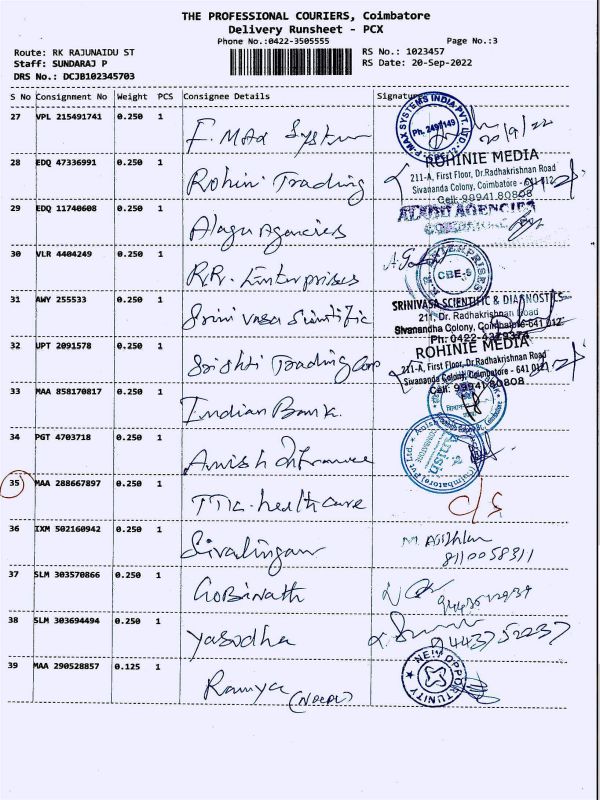 THE PROFESSIONAL COURIERS, Coimbatore
Delivery Runsheet - PCX
Phone No.:0422-3505555 Page No.:3
Route: RK RAJUNAIDU ST RS No.: 1023457
Staff: SUNDARAJ P RS Date: 20-Sep-2022
DRS No.: DCJB102345703
S No Consignment No Weight PCS Consignee Details Signature
27 VPL 215491741 0.250 1 F. Max System 20/9/22
P.MAX SYSTEMS INDIA PVT. LTD.
Ph. 2497149
28 EDQ 47336991 0.250 1 Rohini Trading
ROHINIE MEDIA
211-A, First Floor, Dr.Radhakrishnan Road
Sivananda Colony, Coimbatore - 641 012
Cell: 99941 80808
29 EDQ 11740608 0.250 1 Alagu Agencies
AGENCIES
30 VLR 4404249 0.250 1 R.R. Enterprises
ENTERPRISES
CBE.
31 AWY 255533 0.250 1 Srinivasa Scientific
SRINIVASA SCIENTIFIC & DIAGNOSTICS
211, Dr. Radhakrishnan Road
Sivanandha Colony, Coimbatore-641 012
Ph: 0422-
32 UPT 2091578 0.250 1 Srishti Trading Corp
ROHINIE MEDIA
211-A, First Floor, Dr.Radhakrishnan Road
Sivananda Colony, Coimbatore - 641 012
Cell: 99941 80808
33 MAA 858170817 0.250 1 Indian Bank
34 PGT 4703718 0.250 1 Anish
Anish
(Coimbatore) Pvt Ltd.
35 MAA 288667897 0.250 1 TTK. healthcare C/S
36 IXM 502160942 0.250 1 Sivalingam
8110058311
37 SLM 303570866 0.250 1 Gobinath
38 SLM 303694494 0.250 1 Yasodha 9443752237
39 MAA 290528857 0.125 1 Ramya
NEW OPPORTUNITY